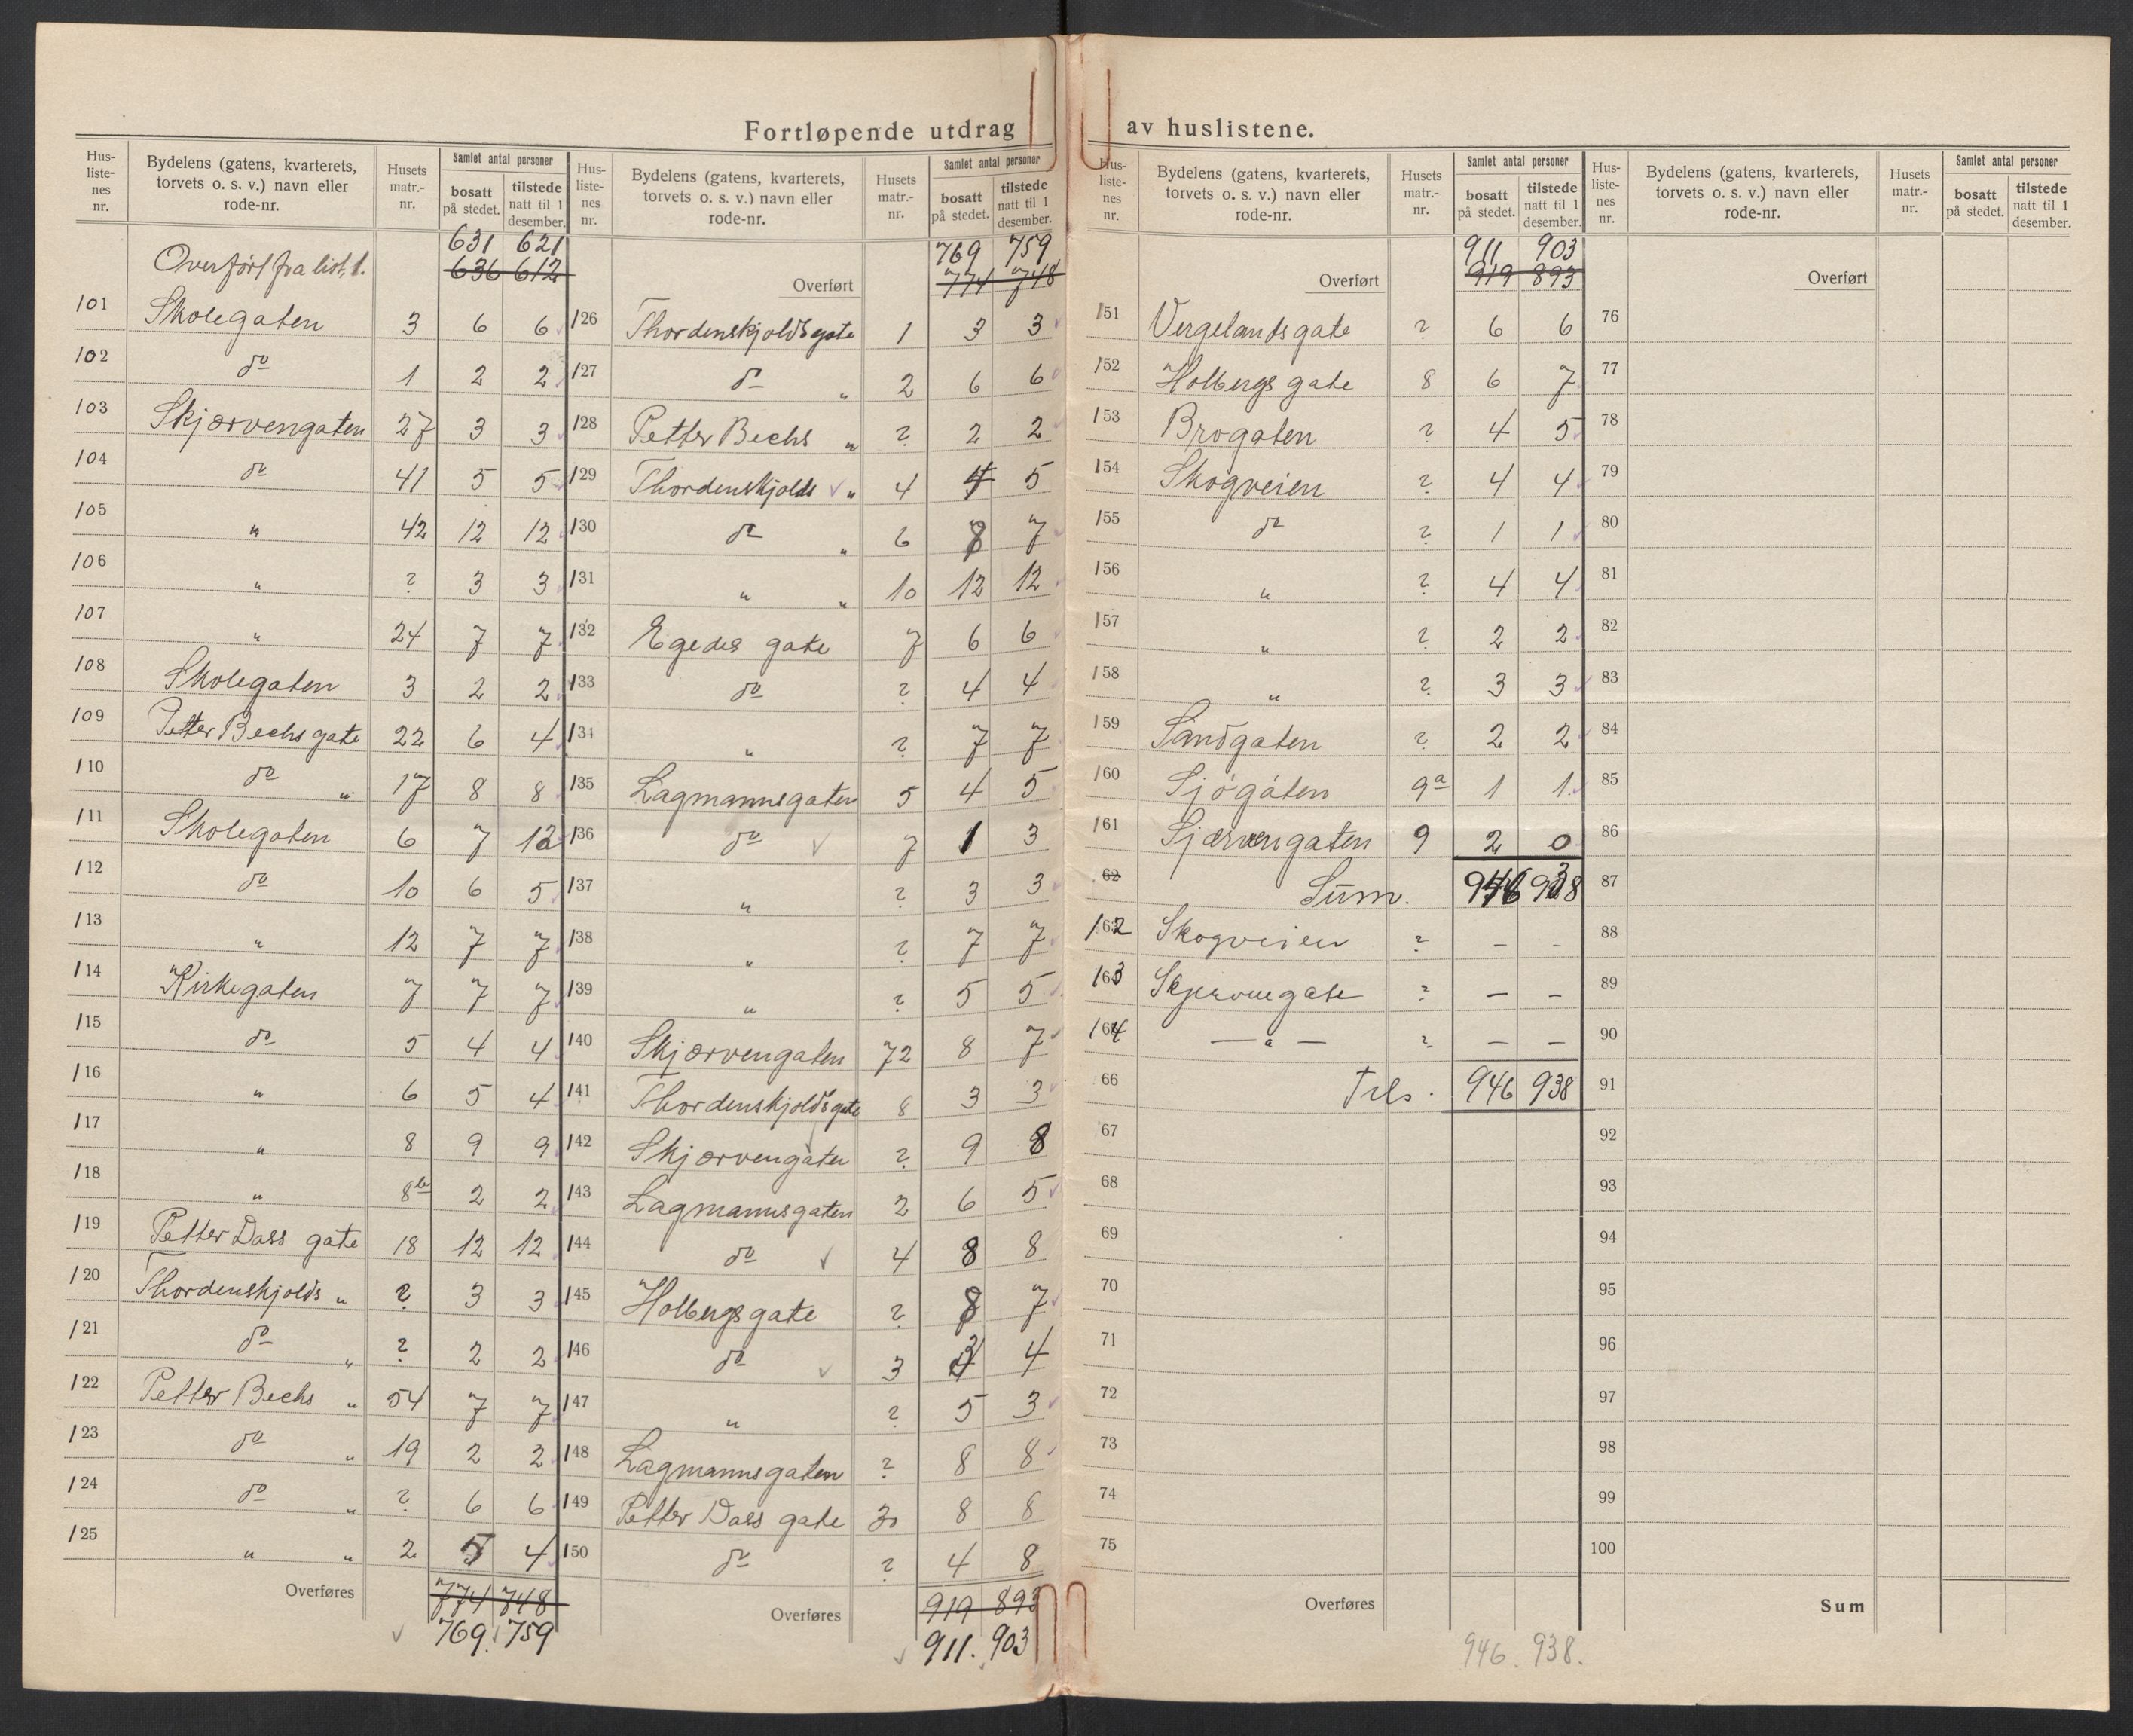 Fortløpende utdrag av huslistene.
Hus-listenes nr. Bydelens (gatens, kvarterets, torvets o. s. v.) navn eller rode-nr. Husets matr.-nr. Samlet antal personer bosatt på stedet. tilstede natt til 1 desember.
631 621
Overført fra list. 1. 636 612
101 Skolegaten 3 6 6
102 do 1 2 2
103 Skjærvengaten 27 3 3
104 do 41 5 5
105 " 42 12 12
106 " ? 3 3
107 " 24 7 7
108 Skolegaten 3 2 2
109 Petter Bechs gate 22 6 4
110 do " 17 8 8
111 Skolegaten 6 7 12
112 do 10 6 5
113 " 12 7 7
114 Kirkegaten 7 7 7
115 do 5 4 4
116 " 6 5 4
117 " 8 9 9
118 " 8b 2 2
119 Petter Dass gate 18 12 12
120 Thordenskjolds " ? 3 3
121 do " ? 2 2
122 Petter Bechs " 54 7 7
123 do " 19 2 2
124 do " ? 6 6
125 " " 2 5 4
Overføres 774 748
769. 759
Hus-listenes nr. Bydelens (gatens, kvarterets, torvets o. s. v.) navn eller rode-nr. Husets matr.-nr. Samlet antal personer bosatt på stedet. tilstede natt til 1 desember.
769 759
Overført 774 748
126 Thordenskjolds gate 1 3 3
127 do " 2 6 6
128 Petter Bechs " ? 2 2
129 Thordenskjolds " 4 4 5
130 do " 6 8 7
131 " " 10 12 12
132 Egedes gate 7 6 6
133 do ? 4 4
134 " ? 7 7
135 Lagmannsgaten 5 4 5
136 do 7 1 3
137 " ? 3 3
138 " ? 7 7
139 " ? 5 5
140 Skjærvengaten 72 8 7
141 Thordenskjolds gate 8 3 3
142 Skjærvengaten ? 9 8
143 Lagmannsgaten 2 6 5
144 do 4 8 8
145 Holbergs gate ? 8 7
146 do 3 3 4
147 " ? 5 3
148 Lagmannsgaten ? 8 8
149 Petter Dass gate 30 8 8
150 do ? 4 8
Overføres 919 893
911. 903
Hus-listenes nr. Bydelens (gatens, kvarterets, torvets o. s. v.) navn eller rode-nr. Husets matr.-nr. Samlet antal personer bosatt på stedet. tilstede natt til 1 desember.
911 903
Overført 919 893
151 Vergelands gate ? 6 6
152 Holbergs gate 8 6 7
153 Brogaten ? 4 5
154 Skogveien ? 4 4
155 do ? 1 1
156 " ? 4 4
157 " ? 2 2
158 " ? 3 3
159 Sandgaten ? 2 2
160 Sjøgaten 9a 1 1
161 Sjærvengaten 9 2 0
62 Sum. 946 938
162 Skogveien ? – –
163 Skjervengate ? – –
164 — " — ? – –
66 Tils. 946 938
67
68
69
70
71
72
73
74
75
Overføres
946. 938.
Hus-listenes nr. Bydelens (gatens, kvarterets, torvets o. s. v.) navn eller rode-nr. Husets matr.-nr. Samlet antal personer bosatt på stedet. tilstede natt til 1 desember.
Overført
76
77
78
79
80
81
82
83
84
85
86
87
88
89
90
91
92
93
94
95
96
97
98
99
100
Sum